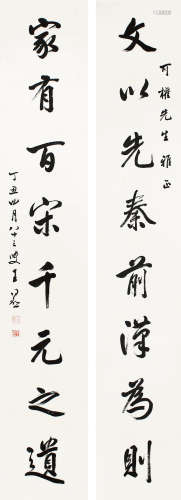 可權先生雅正
文以先秦前漢為則
家有百宋千元之遺
丁丑四月八十三叟王